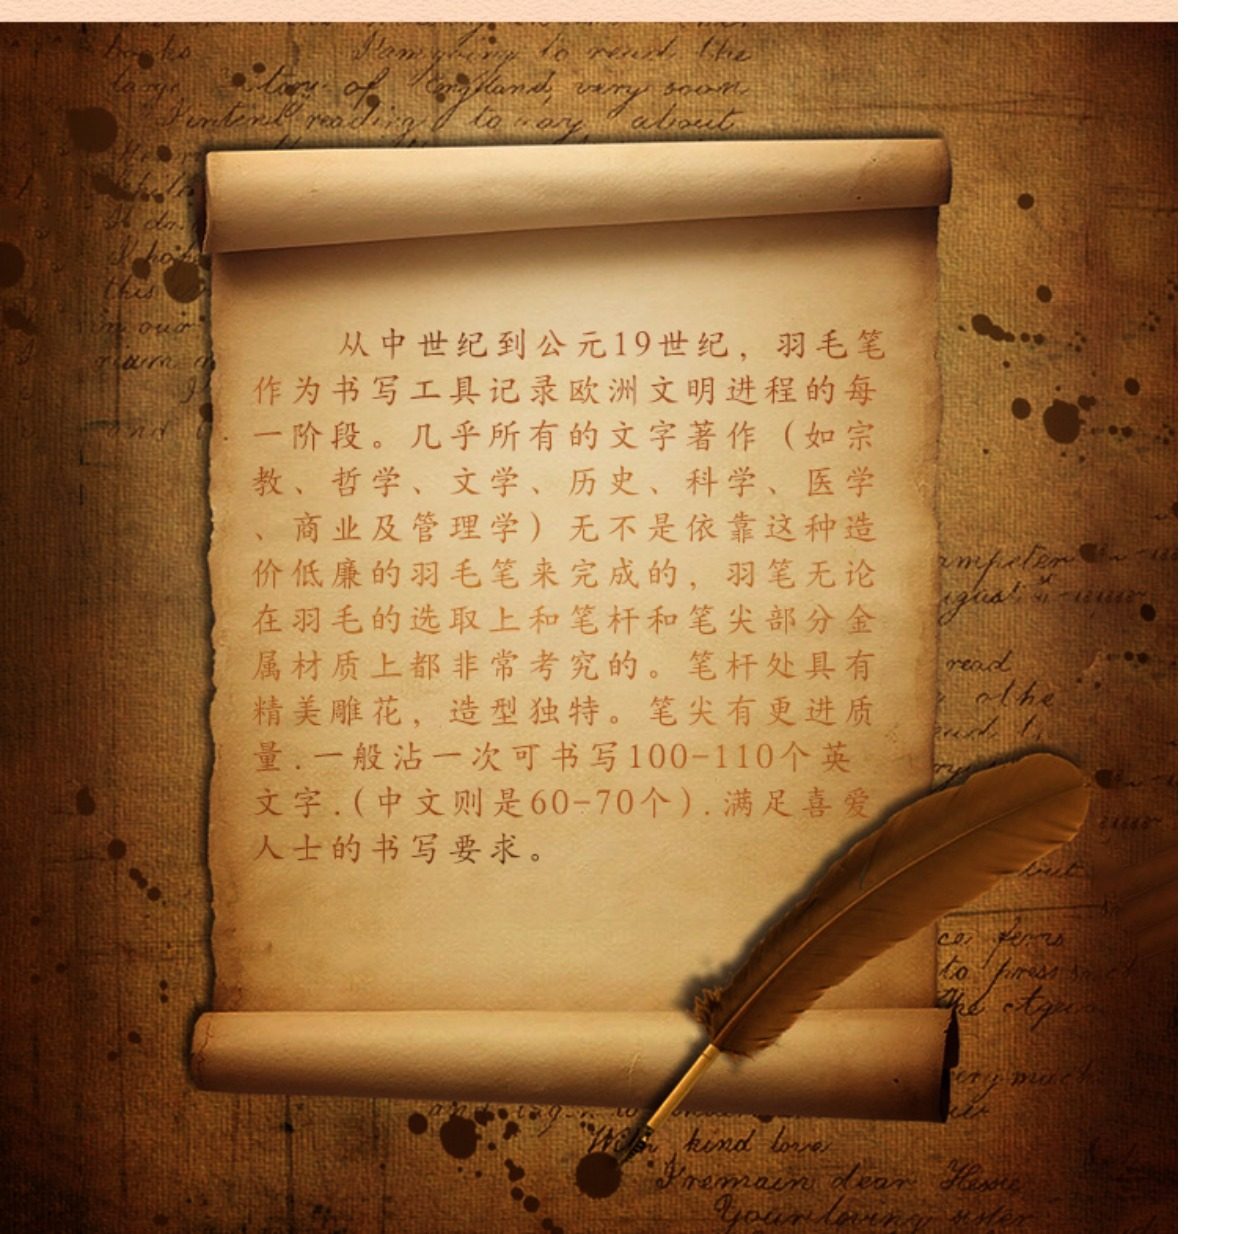 books I am going to read the
large history of England, very soon
I intend reading to say about
从中世纪到公元19世纪，羽毛笔
作为书写工具记录欧洲文明进程的每
一阶段。几乎所有的文字著作（如宗
教、哲学、文学、历史、科学、医学
、商业及管理学）无不是依靠这种造
价低廉的羽毛笔来完成的，羽笔无论
在羽毛的选取上和笔杆和笔尖部分金
属材质上都非常考究的。笔杆处具有
精美雕花，造型独特。笔尖有更进质
量.一般沾一次可书写100-110个英
文字.(中文则是60-70个).满足喜爱
人士的书写要求。
this
in our
read
kind love
I remain dear
Your loving sister